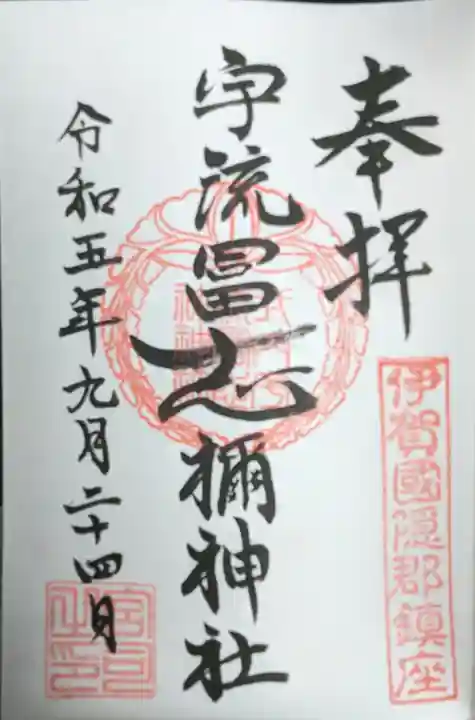 奉拝
伊賀國隠郡鎮座
宇流冨志禰神社
令和五年九月二十四日
宮司之印